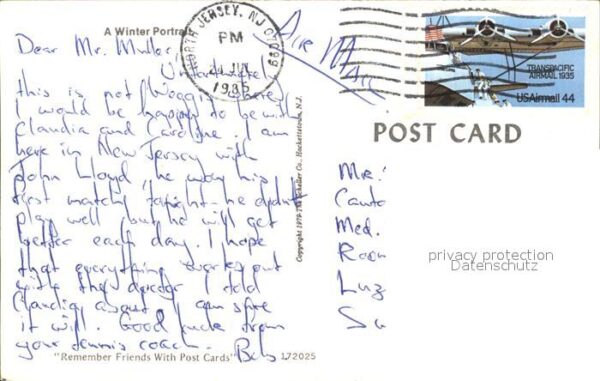 A Winter Portrait
Dear Mr. Muller
Unfortunately
this is not Woggis where
I would be happy to be with
Claudia and Caroline. I am
here in New Jersey with
John Lloyd, he won his
first match tonight - he didn't
play well but he will get
better each day. I hope
that everything works out
with the I told
Claudia about I am sure
it will. Good luck from
your tennis coach. Bob
"Remember Friends With Post Cards" 172025
Copyright 1979 The Scheller Co., Hackettstown, N.J.
NORTH JERSEY, NJ 07099
PM
JUL
1985
Air Mail
TRANSPACIFIC
AIRMAIL 1935
USAirmail 44
POST CARD
Mr.
Canto
Med.
Room
Luz
Su
privacy protection
Datenschutz